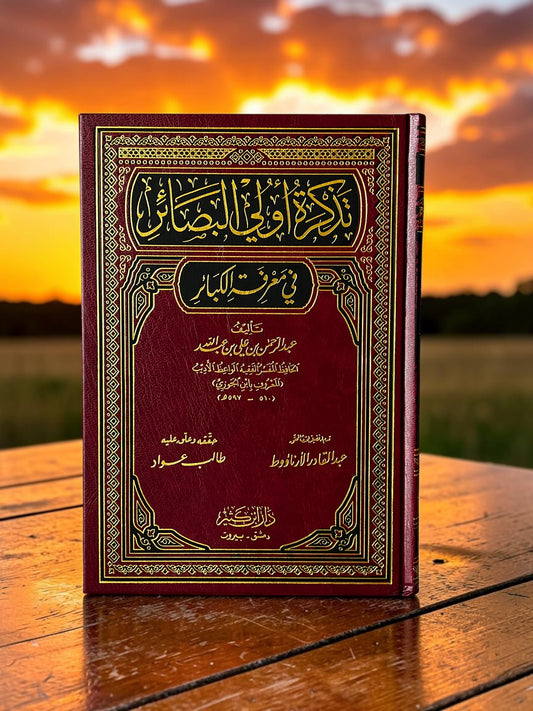 تذكرة أولي البصائر
في معرفة الكبائر
تأليف
عبد الرحمن بن علي بن عبد الله
الحافظ المفسر الفقيه الواعظ الأديب
(المعروف بابن الجوزي)
(٥١٠ - ٥٩٧ هـ)
عبد القادر الأرناؤوط
حققه وعلق عليه
طالب عواد
دار ابن كثير
دمشق - بيروت